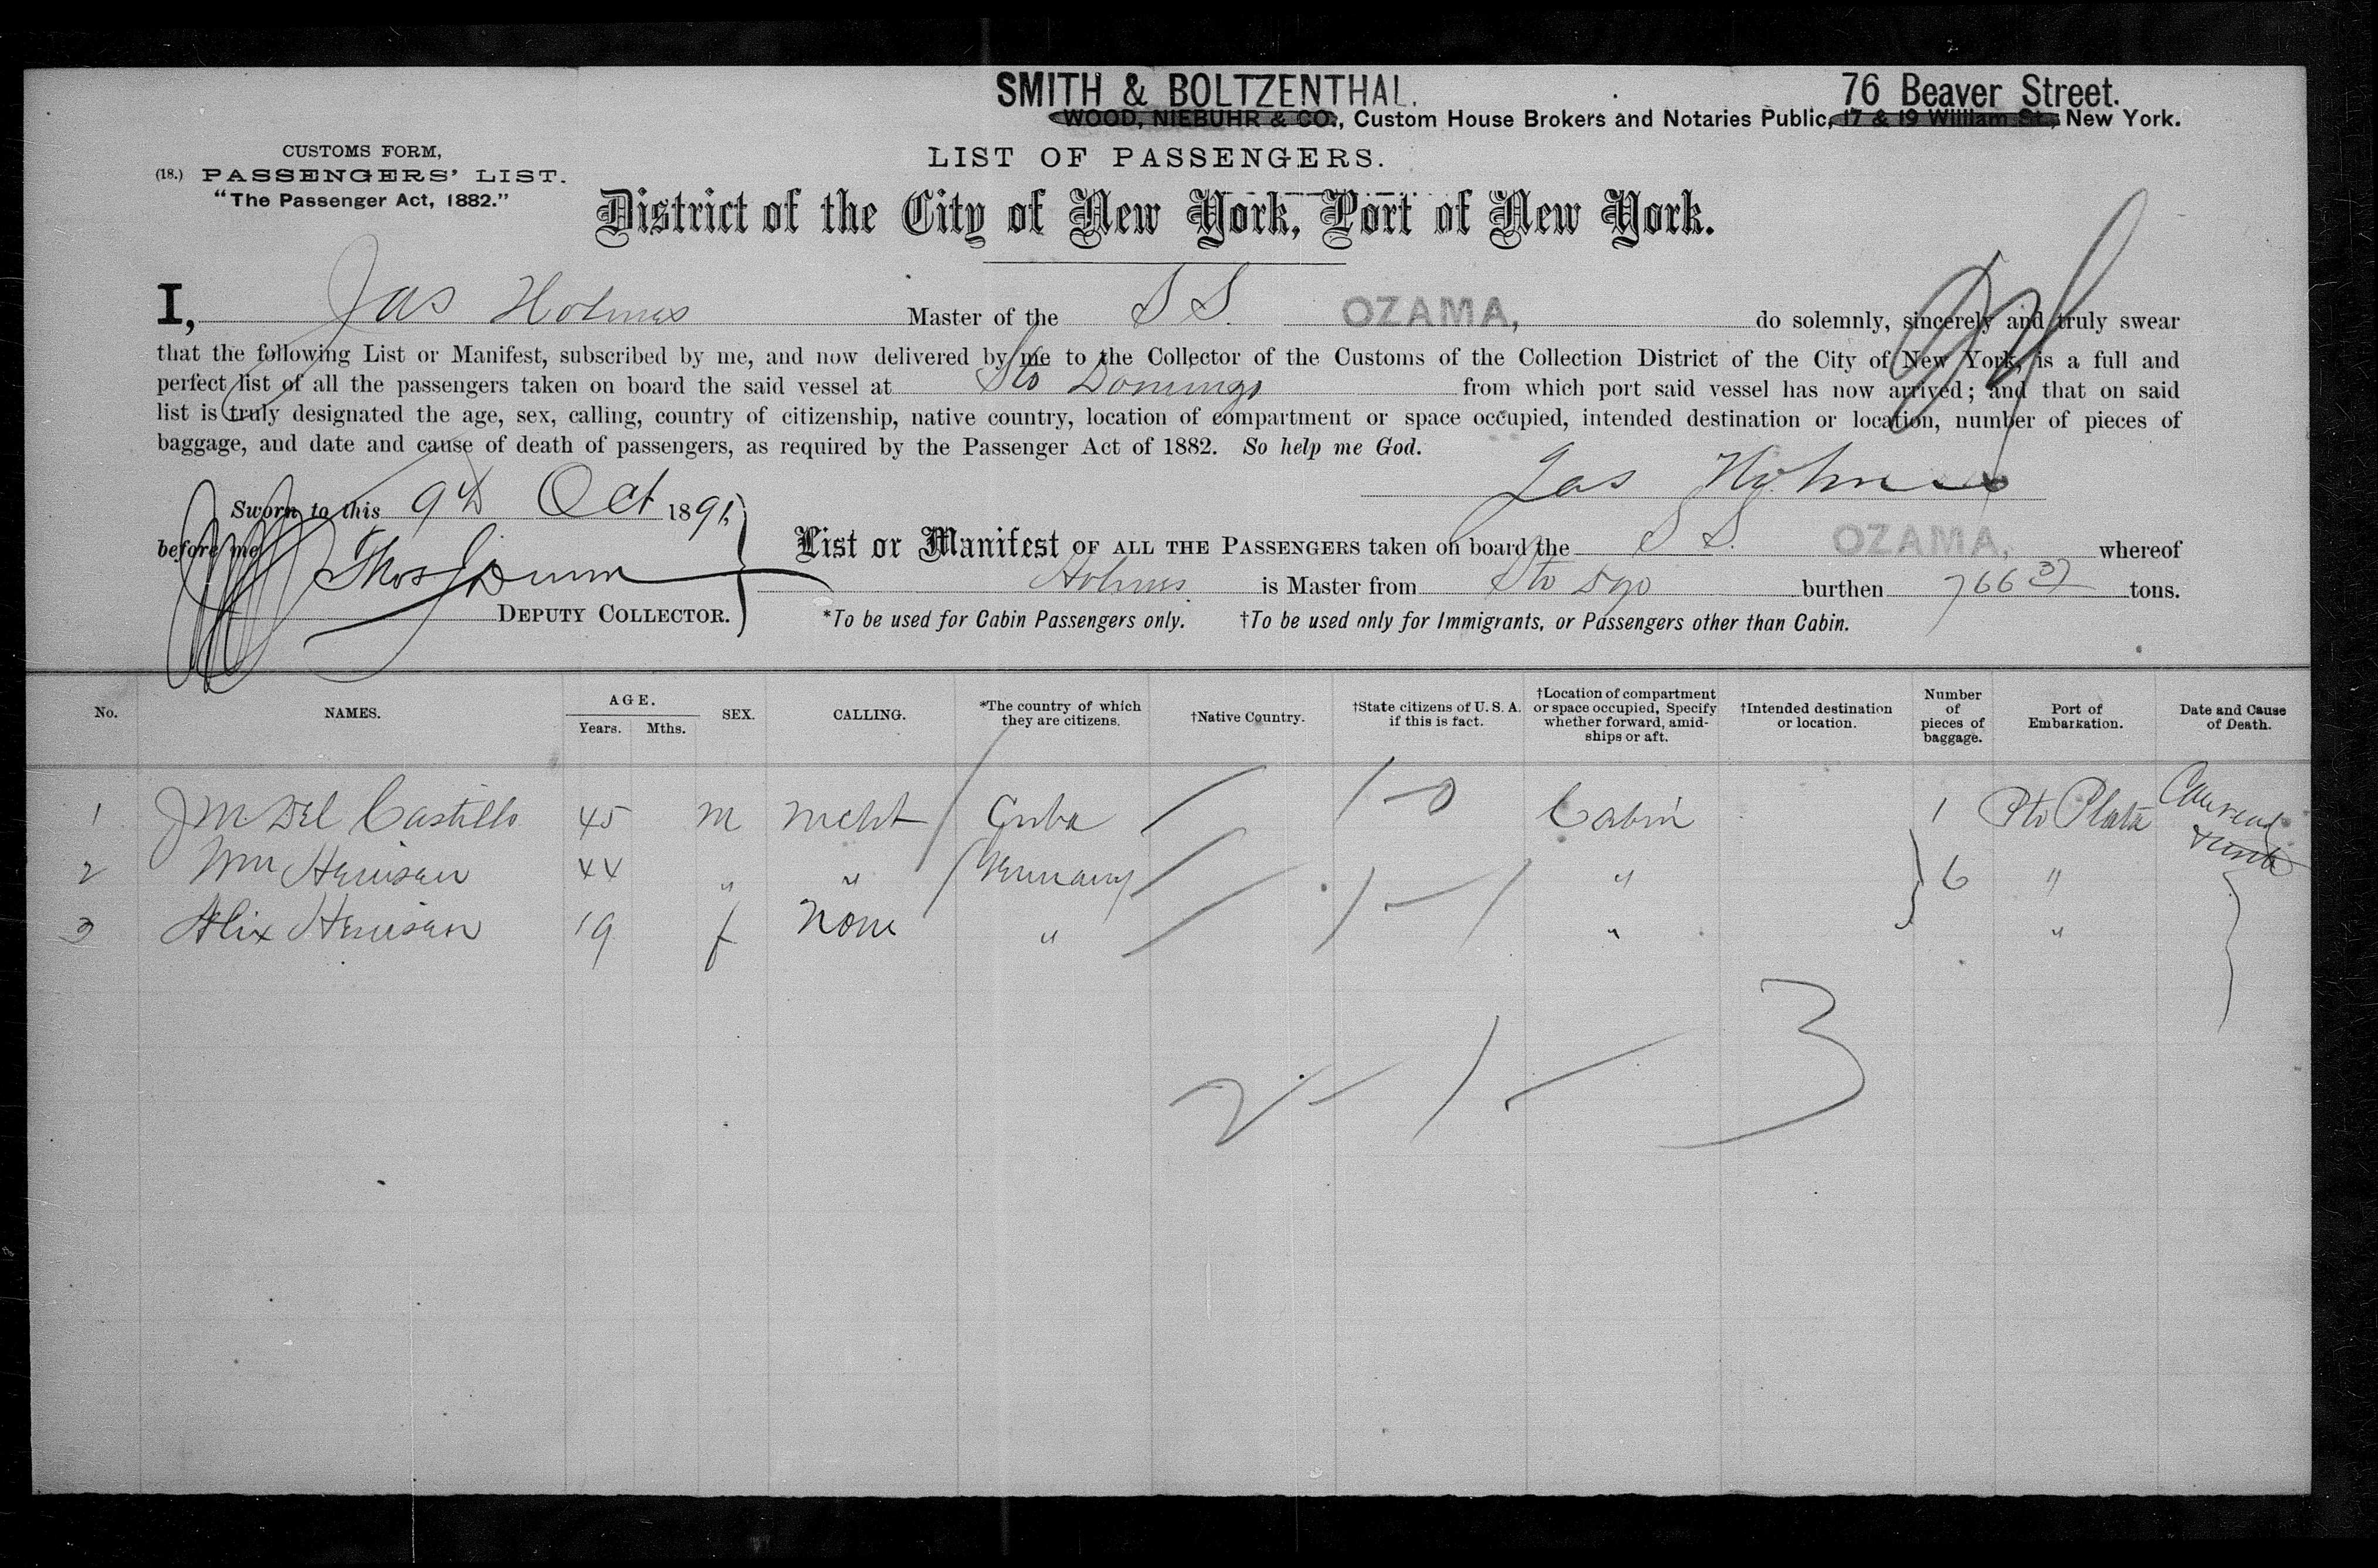 SMITH & BOLTZENTHAL. 76 Beaver Street.
WOOD, NIEBUHR & CO., Custom House Brokers and Notaries Public, 17 & 19 William St., New York.
CUSTOMS FORM,
(18.) PASSENGERS' LIST.
"The Passenger Act, 1882."
LIST OF PASSENGERS.
District of the City of New York, Port of New York.
I, Jas Holmes Master of the S S. OZAMA, do solemnly, sincerely and truly swear
that the following List or Manifest, subscribed by me, and now delivered by me to the Collector of the Customs of the Collection District of the City of New York, is a full and
perfect list of all the passengers taken on board the said vessel at Sto Domingo from which port said vessel has now arrived; and that on said
list is truly designated the age, sex, calling, country of citizenship, native country, location of compartment or space occupied, intended destination or location, number of pieces of
baggage, and date and cause of death of passengers, as required by the Passenger Act of 1882. So help me God.
Jas Holmes
Sworn to this 9th Oct 1891,
before me
Thos J Dunn
DEPUTY COLLECTOR.
List or Manifest OF ALL THE PASSENGERS taken on board the S S. OZAMA, whereof
Holmes is Master from Sto Dgo burthen 766 37 tons.
*To be used for Cabin Passengers only. †To be used only for Immigrants, or Passengers other than Cabin.
No. NAMES. AGE. Years. Mths. SEX. CALLING. *The country of which they are citizens. †Native Country. †State citizens of U. S. A. if this is fact. †Location of compartment or space occupied, Specify whether forward, amidships or aft. †Intended destination or location. Number of pieces of baggage. Port of Embarkation. Date and Cause of Death.
1 J M Del Castillo 45 m mcht Cuba 1-0 Cabin 1 Pto Plata
2 Wm Heinsen 44 " " Germany " 6 "
3 Alix Heinsen 19 f none " " "
2 - 1 - 3